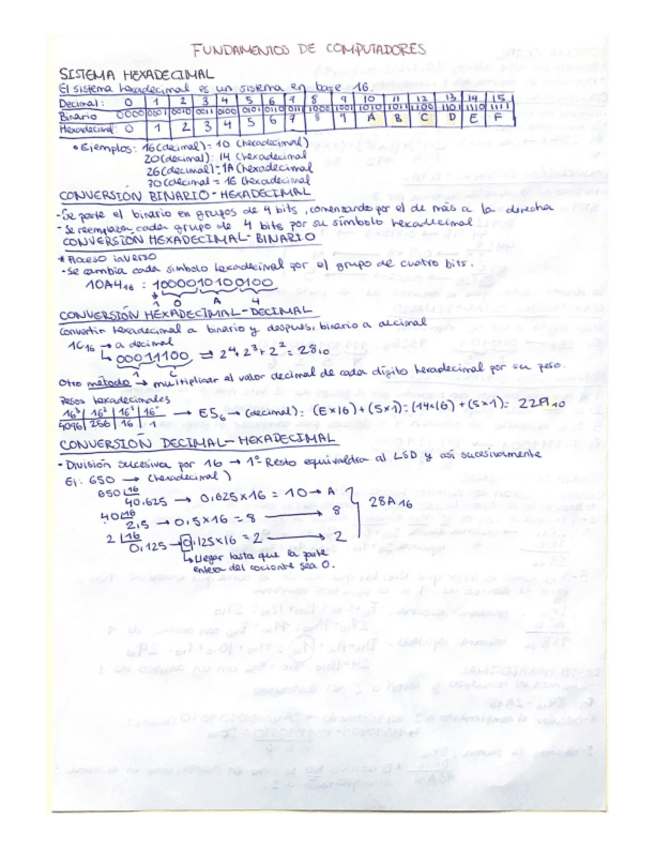 FUNDAMENTOS DE COMPUTADORES
SISTEMA HEXADECIMAL
El sistema hexadecimal es un sistema en base 16.
Decimal: 0 1 2 3 4 5 6 7 8 9 10 11 12 13 14 15
Binario 0000 0001 0010 0011 0100 0101 0110 0111 1000 1001 1010 1011 1100 1101 1110 1111
Hexadecimal: 0 1 2 3 4 5 6 7 8 9 A B C D E F
• Ejemplos: 16 (decimal): 10 (hexadecimal)
20 (decimal): 14 (hexadecimal
26 (decimal): 1A (hexadecimal
30 (decimal = 1E (hexadecimal
CONVERSIÓN BINARIO-HEXADECIMAL
- Se parte el binario en grupos de 4 bits, comenzando por el de más a la derecha
- Se reemplaza cada grupo de 4 bits por su símbolo hexadecimal
CONVERSIÓN HEXADECIMAL-BINARIO
* Proceso inverso
- Se cambia cada símbolo hexadecimal por el grupo de cuatro bits.
10A4₁₆ : 1000010100100
1 0 A 4
CONVERSIÓN HEXADECIMAL-DECIMAL
Convertir hexadecimal a binario y después, binario a decimal
1C₁₆ → a decimal
↳ 00011100 ⇒ 2⁴+2³+2² = 28₁₀
1 C
Otro método → multiplicar el valor decimal de cada dígito hexadecimal por su peso.
Pesos hexadecimales
16³ | 16² | 16¹ | 16⁰ → E5₁₆ → (decimal): (E×16)+(5×1): (14×16)+(5×1): 229₁₀
4096 | 256 | 16 | 1
CONVERSIÓN DECIMAL-HEXADECIMAL
- División sucesiva por 16 → 1º Resto equivaldrá al LSD y así sucesivamente
Ej: 650 → (hexadecimal)
650 |16
40,625 → 0,625×16 = 10 → A
40 |16
2,5 → 0,5×16 = 8 → 8 28A₁₆
2 |16
0,125 → 0,125×16 = 2 → 2
↳ Llegar hasta que la parte
entera del cociente sea 0.